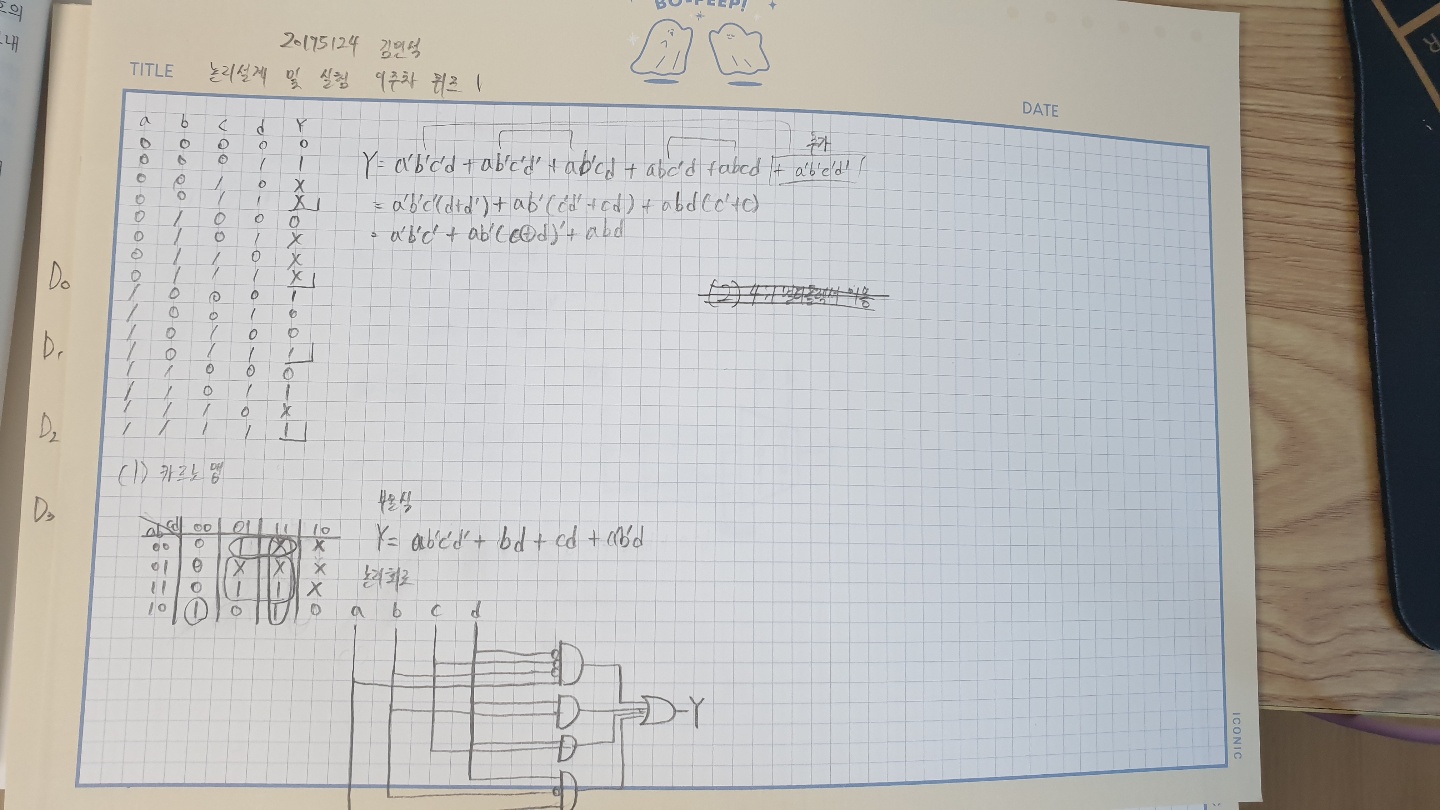 BO-PEEP!
20175124 김민석
TITLE 논리설계 및 실험 9주차 퀴즈 1
DATE
a b c d Y
0 0 0 0 0
0 0 0 1 1
0 0 1 0 X
0 0 1 1 X
0 1 0 0 0
0 1 0 1 X
0 1 1 0 X
0 1 1 1 X
1 0 0 0 1
1 0 0 1 0
1 0 1 0 0
1 0 1 1 1
1 1 0 0 0
1 1 0 1 1
1 1 1 0 X
1 1 1 1 1
D0
D1
D2
D3
추가
Y= a'b'c'd + ab'c'd' + ab'cd + abc'd + abcd + a'b'c'd'
= a'b'c'(d+d') + ab'(c'd'+cd) + abd(c'+c)
= a'b'c' + ab'(c⊕d)' + abd
(2) 4:1 멀티플렉서 이용
(1) 카르노 맵
ab cd 00 01 11 10
00 0 1 X X
01 0 X X X
11 0 1 1 X
10 1 0 1 0
부울식
Y= ab'c'd' + bd + cd + a'b'd
논리회로
a b c d
Y
ICONIC